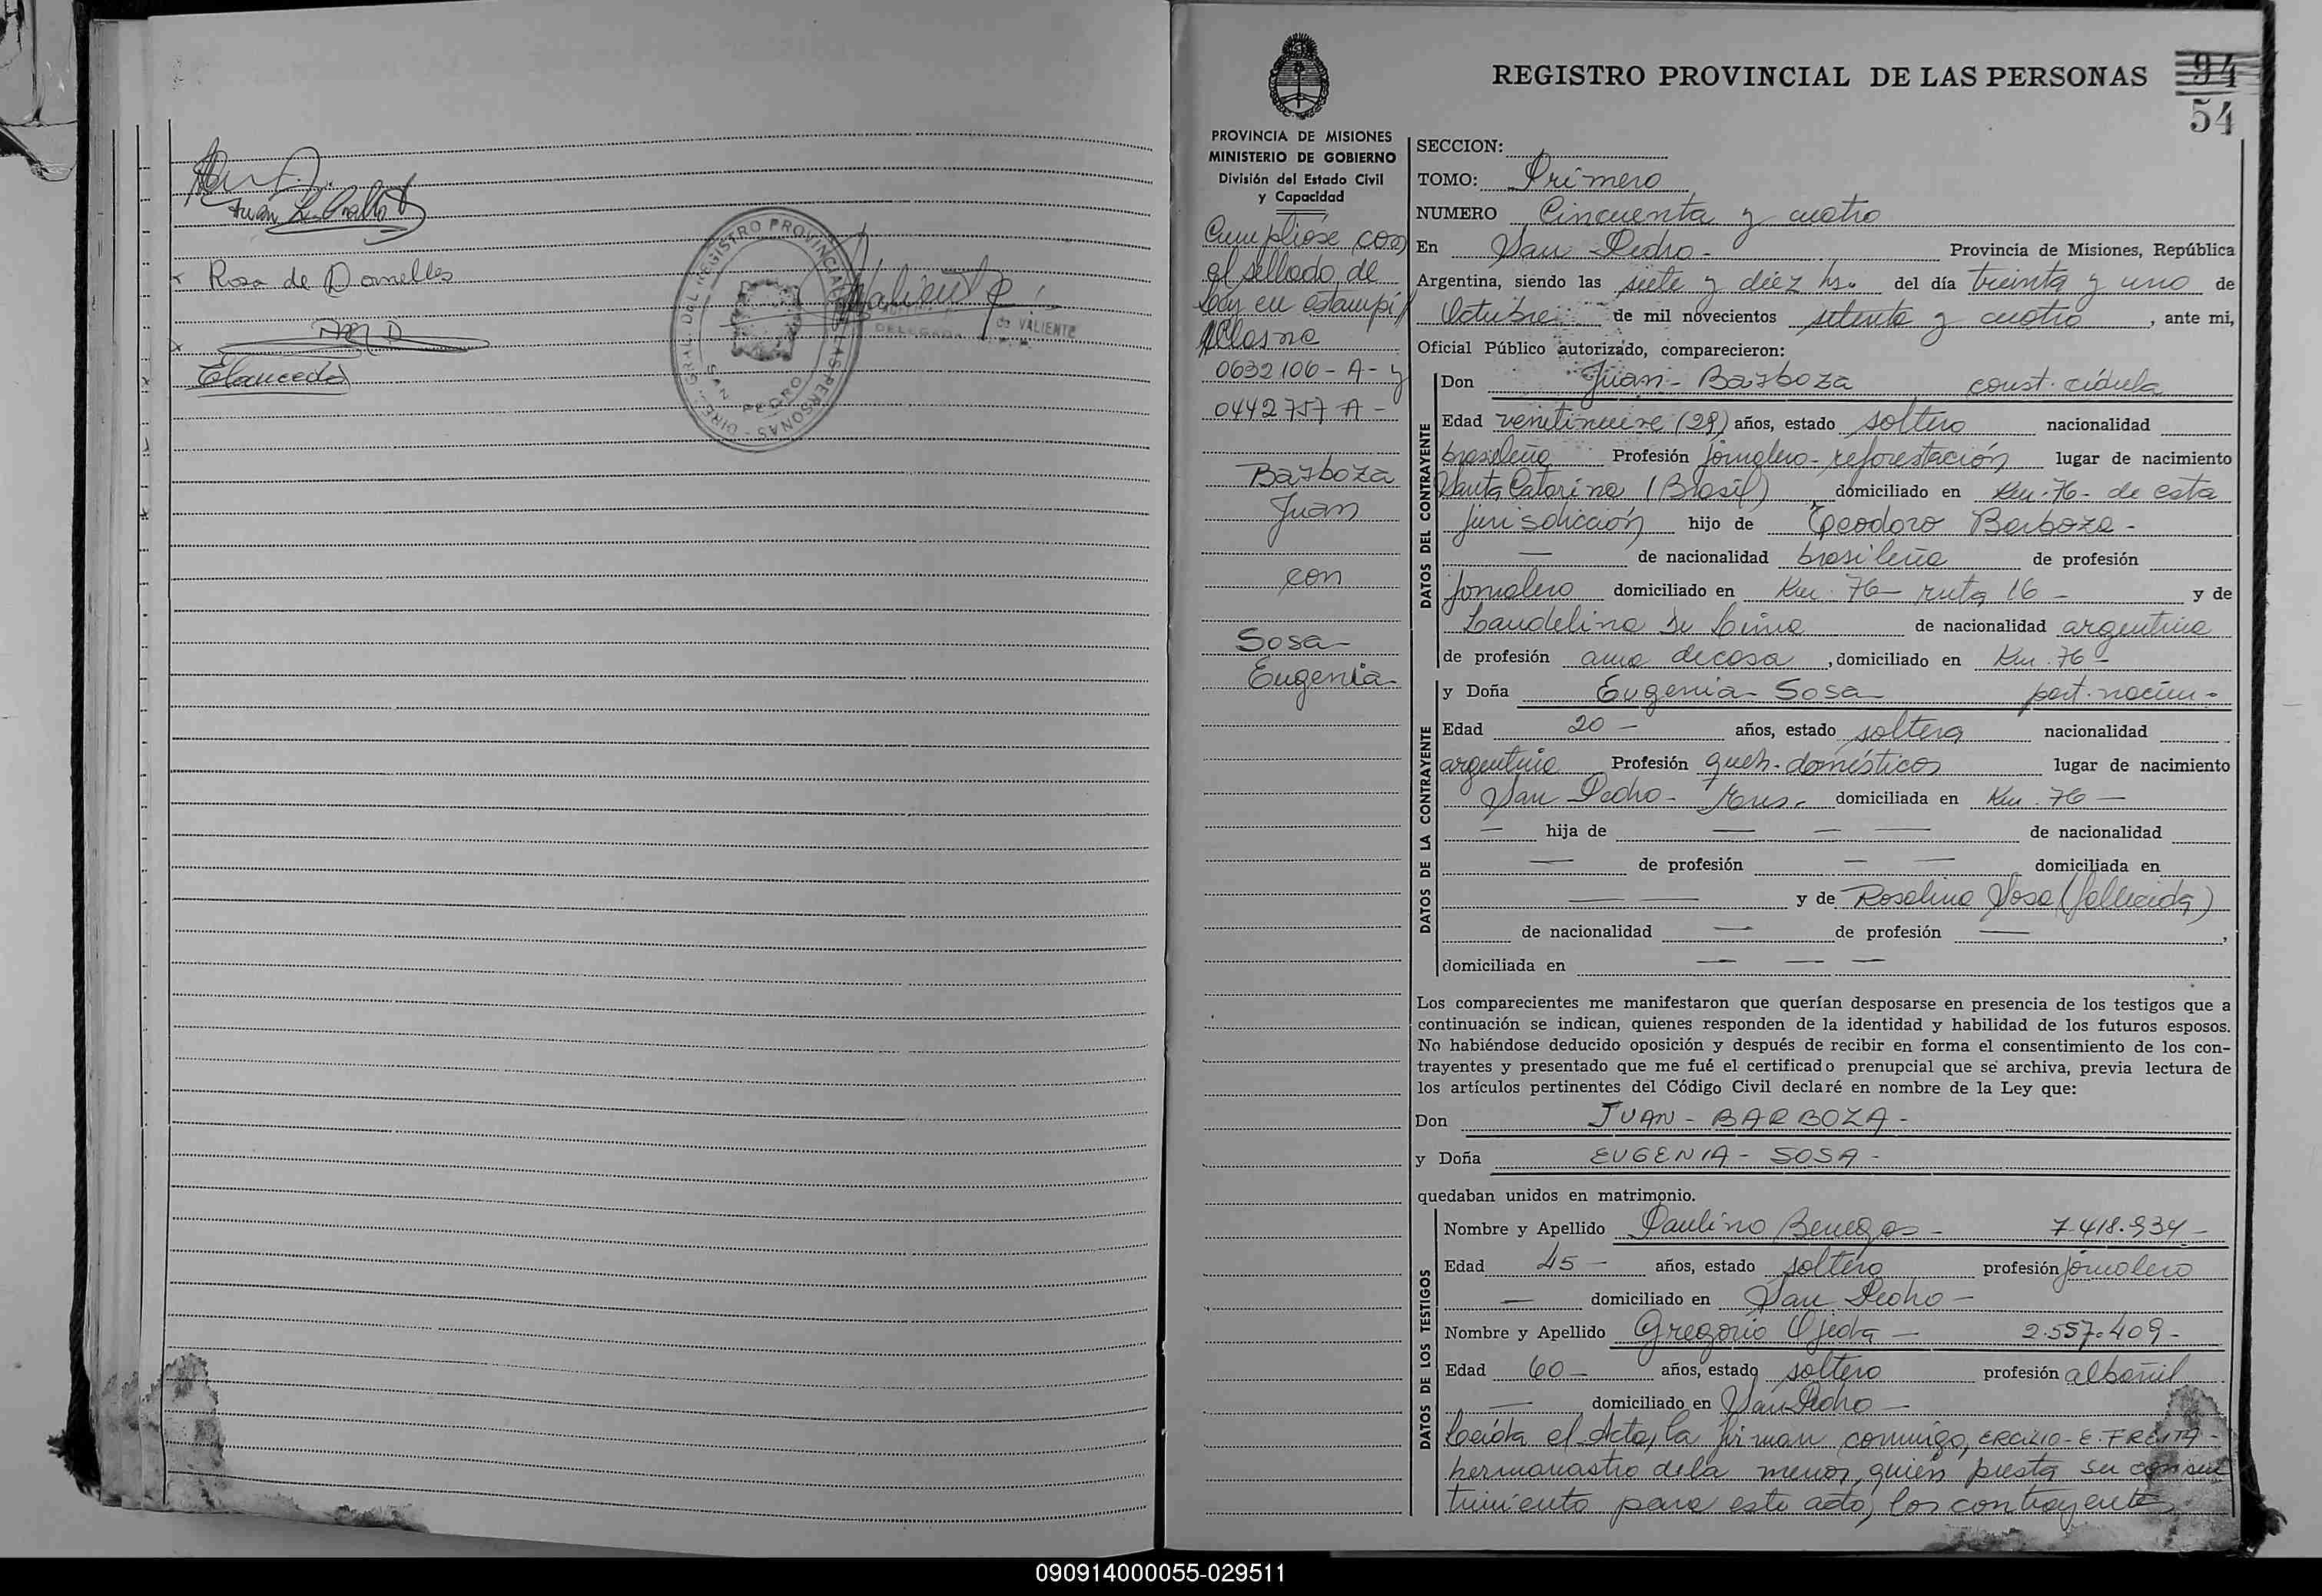 Rosa de Dornelles
DIRE. GRAL. DEL REGISTRO PROVINCIAL DE LAS PERSONAS
SAN PEDRO
de VALIENTE
REGISTRO PROVINCIAL DE LAS PERSONAS
94
54
PROVINCIA DE MISIONES
MINISTERIO DE GOBIERNO
División del Estado Civil
y Capacidad
Cumpliose con
el sellado de
Ley en estampi
0632106-A-y
0442757 A-
Barboza
Juan
con
Sosa
Eugenia
SECCION:
TOMO: Primero
NUMERO Cincuenta y cuatro
En San Pedro- Provincia de Misiones, República
Argentina, siendo las siete y diéz hs. del día treinta y uno de
Octubre de mil novecientos setenta y cuatro, ante mi,
Oficial Público autorizado, comparecieron:
DATOS DEL CONTRAYENTE
Don Juan - Barboza const. cédula
Edad (29) años, estado soltero nacionalidad
brasileña Profesión jornalero-reforestación lugar de nacimiento
Santa Catarina (Brasil) domiciliado en Km-76- de esta
jurisdicción hijo de Teodoro Barboza-
— de nacionalidad brasileña de profesión
Jornalero domiciliado en Km. 76- ruta 16- y de
Laudelina De Lima de nacionalidad argentina
de profesión ama de casa, domiciliado en Km. 76-
DATOS DE LA CONTRAYENTE
y Doña Eugenia Sosa part. nacim-
Edad 20- años, estado soltera nacionalidad
argentina Profesión queh. domésticos lugar de nacimiento
San Pedro- domiciliada en Km. 76-
— hija de — — — de nacionalidad
— de profesión — — domiciliada en
— — y de Rosalina Sosa (fallecida)
de nacionalidad — de profesión —,
domiciliada en — — —
Los comparecientes me manifestaron que querían desposarse en presencia de los testigos que a
continuación se indican, quienes responden de la identidad y habilidad de los futuros esposos.
No habiéndose deducido oposición y después de recibir en forma el consentimiento de los con-
trayentes y presentado que me fué el certificado prenupcial que se archiva, previa lectura de
los artículos pertinentes del Código Civil declaré en nombre de la Ley que:
Don JUAN - BARBOZA -
y Doña EUGENIA - SOSA -
quedaban unidos en matrimonio.
DATOS DE LOS TESTIGOS
Nombre y Apellido Paulino Benegas- 7.418.934-
Edad 45- años, estado soltero profesión jornalero
— domiciliado en San Pedro-
Nombre y Apellido Gregorio Ojeda- 2.557.409-
Edad 60- años, estado soltero profesión albañil
— domiciliado en San Pedro-
Leída el Acta, la firman conmigo, ERCILIO-E. FREITA-
hermanastro de la menor, quién presta su consen
timiento para este acto, los contrayentes
090914000055-029511